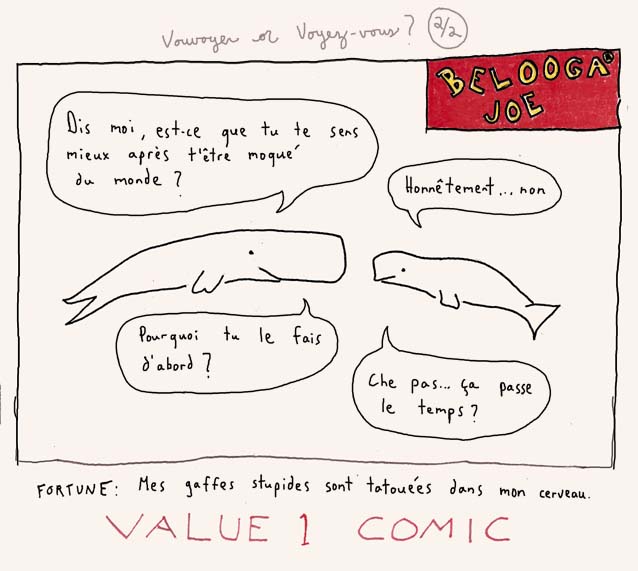 Vouvoyer or Voyez-vous? 2/2
BELOOGA®
JOE
Dis moi, est-ce que tu te sens
mieux après t'être moqué
du monde ?
Honnêtement... non
Pourquoi tu le fais
d'abord ?
Che pas... ça passe
le temps ?
FORTUNE: Mes gaffes stupides sont tatouées dans mon cerveau.
VALUE 1 COMIC